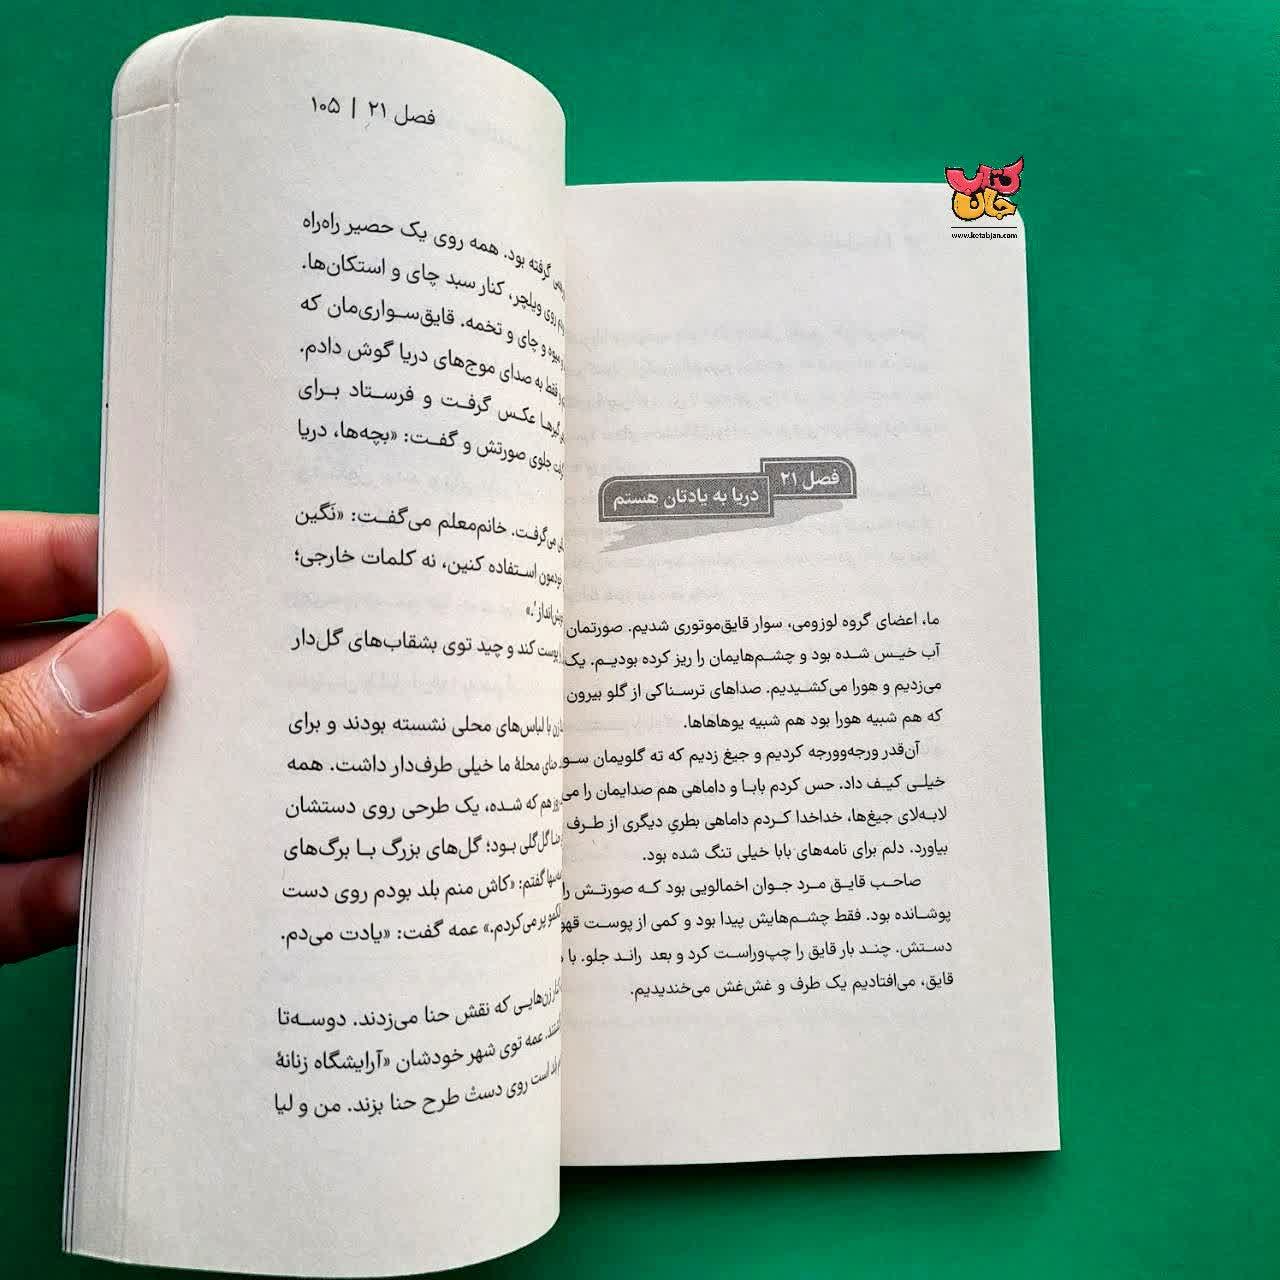 کتاب جان
www.ketabjan.com
فصل ۲۱
دریا به یادتان هستم
ما، اعضای گروه لوزومی، سوار قایق‌موتوری شدیم. صورتمان
آب خیس شده بود و چشم‌هایمان را ریز کرده بودیم. یک
می‌زدیم و هورا می‌کشیدیم. صداهای ترسناکی از گلو بیرون
که هم شبیه هورا بود هم شبیه یوهاهاها.
آن‌قدر ورجه‌وورجه کردیم و جیغ زدیم که ته گلویمان
خیلی کیف داد. حس کردم بابا و داماهی هم صدایمان را
لابه‌لای جیغ‌ها، خداخدا کردم داماهی بطریِ دیگری از طرف
بیاورد. دلم برای نامه‌های بابا خیلی تنگ شده بود.
صاحب قایق مرد جوان اخمالویی بود که صورتش را
پوشانده بود. فقط چشم‌هایش پیدا بود و کمی از پوست
دستش. چند بار قایق را چپ‌وراست کرد و بعد راند جلو. با
قایق، می‌افتادیم یک طرف و غش‌غش می‌خندیدیم.
فصل ۲۱ | ۱۰۵
گرفته بود. همه روی یک حصیر راه‌راه
روی ویلچر، کنار سبد چای و استکان‌ها.
میوه و چای و تخمه. قایق‌سواری‌مان که
فقط به صدای موج‌های دریا گوش دادم.
عکس گرفت و فرستاد برای
جلوی صورتش و گفت: «بچه‌ها، دریا
می‌گرفت. خانم‌معلم می‌گفت: «نگین
خودمون استفاده کنین، نه کلمات خارجی؛
پوست کند و چید توی بشقاب‌های گل‌دار
زن با لباس‌های محلی نشسته بودند و برای
حنای محلهٔ ما خیلی طرف‌دار داشت. همه
هم که شده، یک طرحی روی دستشان
گل‌گلی بود؛ گل‌های بزرگ با برگ‌های
گفتم: «کاش منم بلد بودم روی دست
پر می‌کردم.» عمه گفت: «یادت می‌دم.
زن‌هایی که نقش حنا می‌زدند. دوسه‌تا
عمه توی شهر خودشان «آرایشگاه زنانهٔ
بلد است روی دست طرح حنا بزند. من و لیا